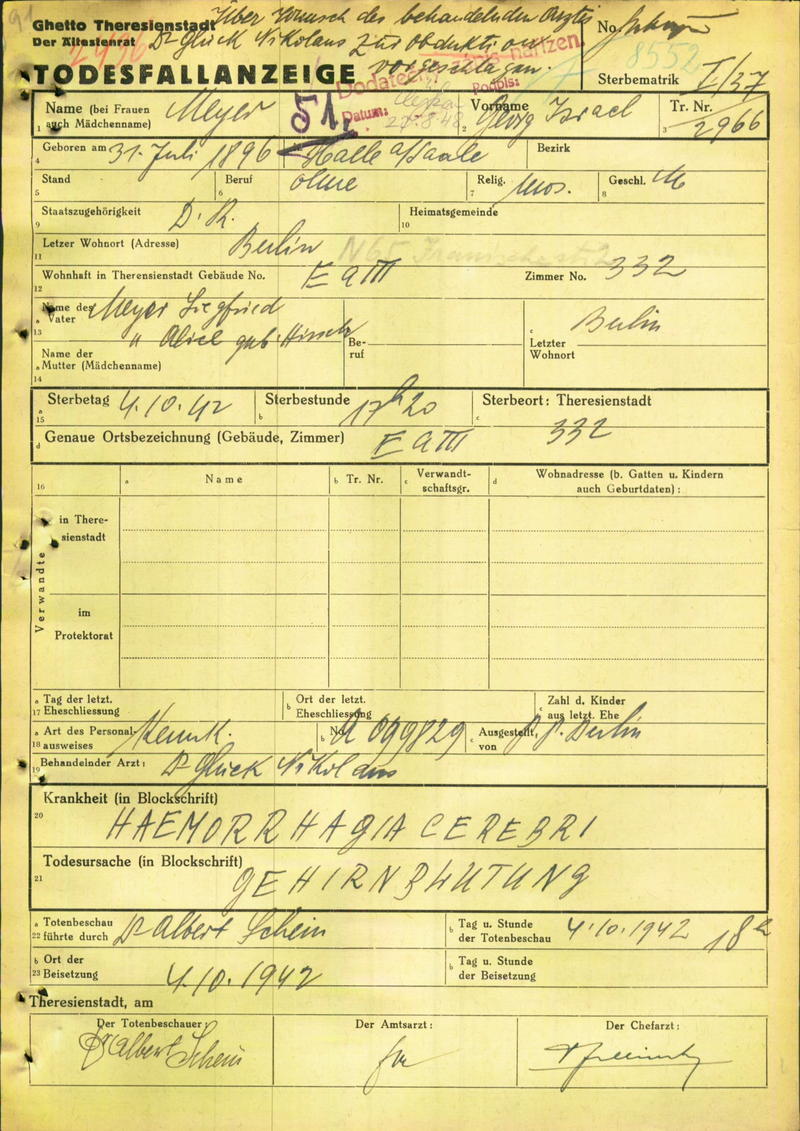 Ghetto Theresienstadt Über Wunsch des behandelnden Arztes
Der Ältestenrat Dr Glück Nikolaus zur Obduktion No.
vorgeschlagen. 8552
TODESFALLANZEIGE Sterbematrik I/37
Datum: 27.8.48 Podpis:
51.
Name (bei Frauen auch Mädchenname) Meyer Vorname Georg Israel Tr. Nr. 2966
1 2 3
Geboren am 31. Juli 1896 Halle a/Saale Bezirk
4
Stand Beruf ohne Relig. mos. Geschl. M
5 6 7 8
Staatszugehörigkeit D. R. Heimatsgemeinde
9 10
Letzer Wohnort (Adresse) Berlin N 65
11
Wohnhaft in Theresienstadt Gebäude No. E a III Zimmer No. 332
12
Name des Vater Meyer Siegfried
a 13
" Alice geb. Hirsch Be-ruf c Letzter Wohnort Berlin
Name der
a Mutter (Mädchenname)
14
a 15 Sterbetag 4.10.42 b Sterbestunde 17h20 c Sterbeort: Theresienstadt
d Genaue Ortsbezeichnung (Gebäude, Zimmer) E a III 332
16 a Name b Tr. Nr. c Verwandt-schaftsgr. d Wohnadresse (b. Gatten u. Kindern auch Geburtdaten):
Verwandte
in There-
sienstadt
im
Protektorat
a 17 Tag der letzt. Eheschliessung b Ort der letzt. Eheschliessung c Zahl d. Kinder aus letzt. Ehe
a 18 Art des Personal-ausweises Kennk. b No. A 099829 c Ausgestellt von P.P. Berlin
19 Behandelnder Arzt: Dr Glück Nikolaus
Krankheit (in Blockschrift)
20 HAEMORRHAGIA CEREBRI
Todesursache (in Blockschrift)
21 GEHIRNBLUTUNG
a 22 Totenbeschau führte durch Dr Albert Schein b Tag u. Stunde der Totenbeschau 4.10.1942 18h
b 23 Ort der Beisetzung 4.10.1942 b Tag u. Stunde der Beisetzung
Theresienstadt, am
Der Totenbeschauer: Der Amtsarzt: Der Chefarzt:
Dr Albert Schein